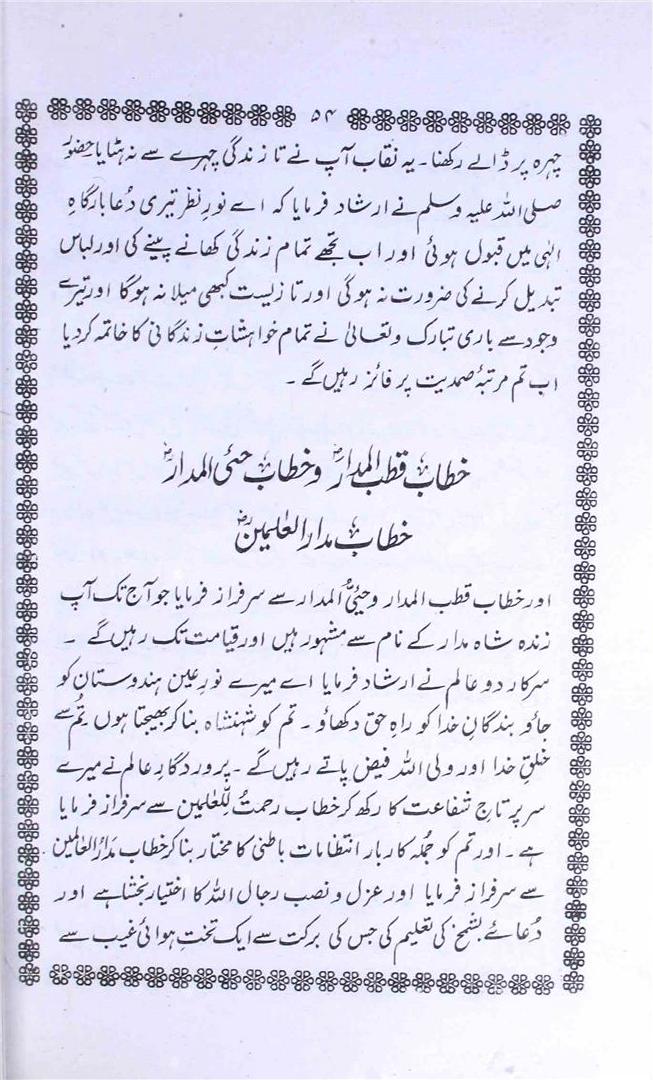 ۵۴
چہرہ پر ڈالے رکھنا۔ یہ نقاب آپ نے تا زندگی چہرے سے نہ ہٹایا حضورؐ
صلی اللہ علیہ وسلم نے ارشاد فرمایا کہ اے نورِ نظر تیری دُعا بارگاہِ
الٰہی میں قبول ہوئی اور اب تجھے تمام زندگی کھانے پینے کی اور لباس
تبدیل کرنے کی ضرورت نہ ہوگی اور تا زیست کبھی میلا نہ ہوگا اور تیرے
وجود سے باری تبارک وتعالیٰ نے تمام خواہشاتِ زندگانی کا خاتمہ کردیا
اب تم مرتبۂ صمدیت پر فائز رہیں گے ۔
خطاب قطب المدارؓ و خطاب حئی المدارؓ
خطاب مدار العٰلمینؓ
اور خطاب قطب المدار و حئیُّ المدار سے سرفراز فرمایا جو آج تک آپ
زندہ شاہ مدار کے نام سے مشہور ہیں اور قیامت تک رہیں گے ۔
سرکار دو عالم نے ارشاد فرمایا اے میرے نورِ عین ہندوستان کو
جاؤ بندگانِ خدا کو راہِ حق دکھاؤ ۔ تم کو شہنشاہ بنا کر بھیجتا ہوں تم سے
خلقِ خدا اور ولی اللہ فیض پاتے رہیں گے ۔ پروردگارِ عالم نے میرے
سر پر تاجِ شفاعت کا رکھ کر خطاب رحمتُ للعٰلمین سے سرفراز فرمایا
ہے ۔ اور تم کو جُملہ کاربار انتظامات باطنی کا مختار بنا کر خطاب مَدارُ العٰالمین
سے سرفراز فرمایا اور عزل و نصب رجال اللہ کا اختیار بخشا ہے اور
دُعائے بشمخ کی تعلیم کی جس کی برکت سے ایک تختِ ہوائی غیب سے